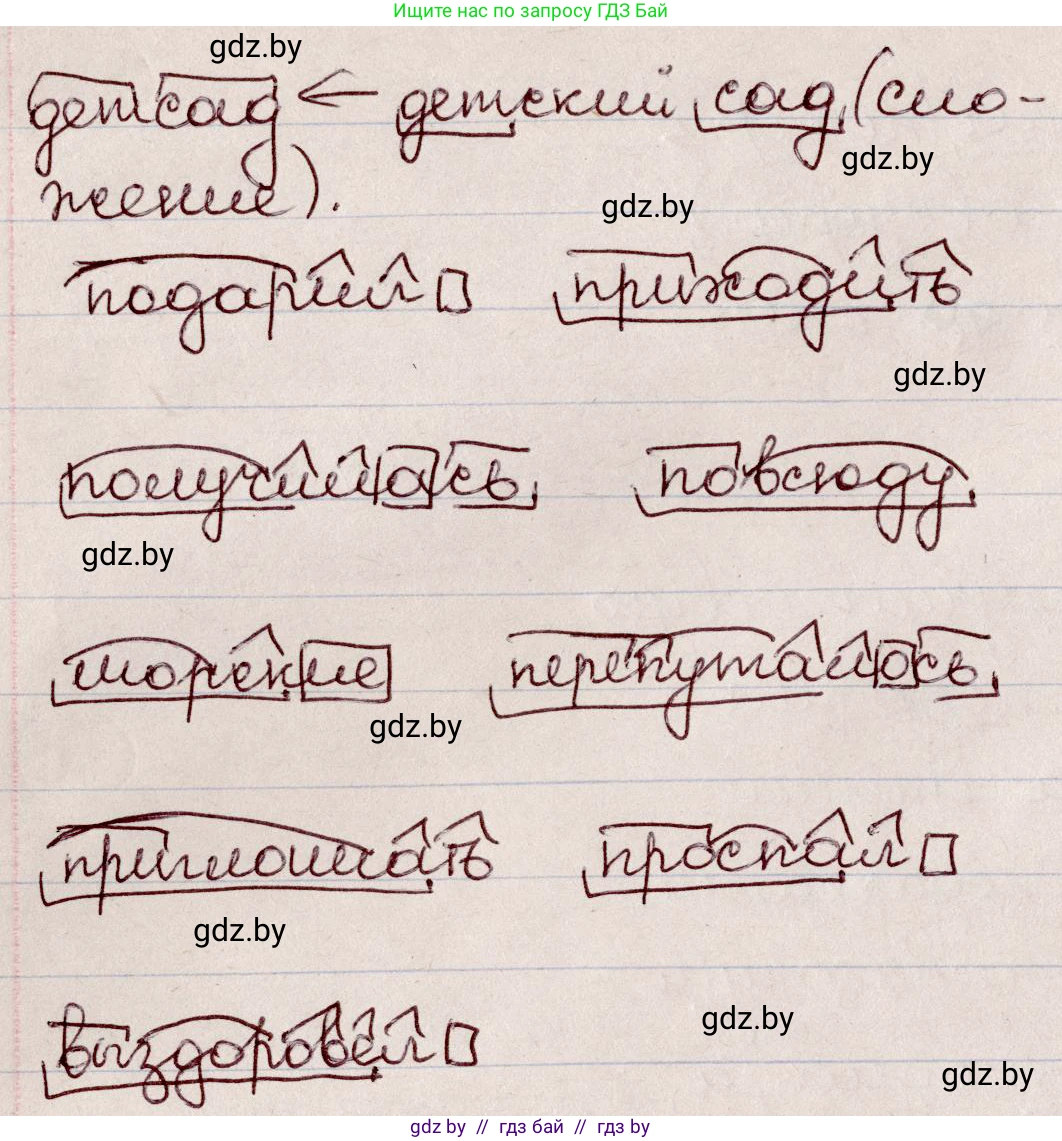 Ищите нас по запросу ГДЗ Бай
gdz.by
детсад ← детский сад (сло-
gdz.by
жение).
gdz.by
подарил приходить
gdz.by
получилась повсюду
gdz.by
морские перепуталось
gdz.by
приглошать проспал
gdz.by
выздоровел
gdz.by
gdz.by
gdz.by // гдз бай // гдз by